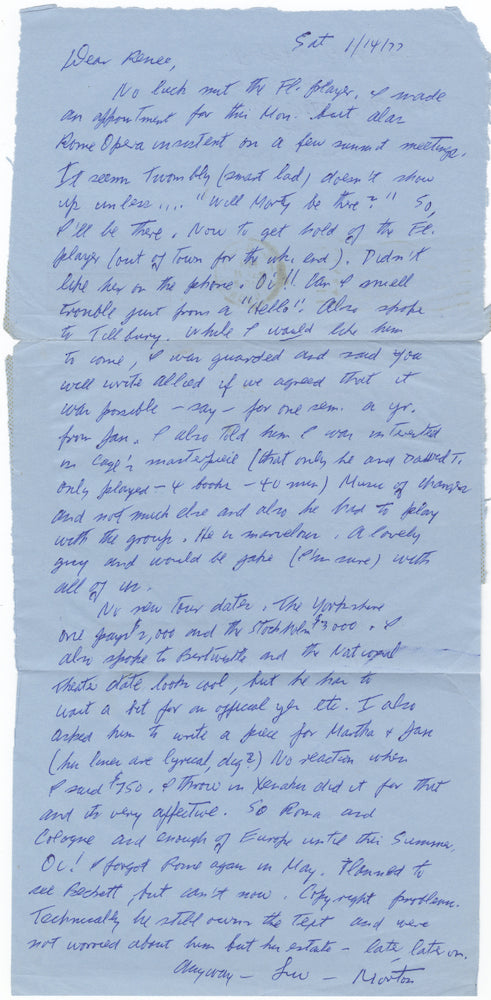 Sat 1/14/77
Dear Renee,
No luck mit the Fl. player. I made
an appointment for this Mon. but alas
Rome Opera insistent on a few summit meetings.
It seems Twombly (smart lad) doesn't show
up unless .... "Will Morty be there?" So,
I'll be there. Now to get hold of the Fl.
player (out of Town for the wk. end). Didn't
like her on the phone. Oi!! Can I smell
trouble just from a "Hello"! Also spoke
to Tillbury. While I would like him
to come, I was guarded and said you
will write allied if we agreed that it
was possible – say – for one sem. or yr.
from Jan. I also Told him I was interested
in Cage's masterpiece (that only he and David T.
only played – 4 books – 40 min) Music of Changes
and not much else and also he had to play
with the group. He is marvelous. A lovely
guy and would be (I'm sure) with
all of us.
No new Tour dates. The Yorkshire
one pays $2,000 and the Stockholm $3000. I
also spoke to Birtwistle and the National
Theatre date looks cool, but he has to
wait a bit for an official yes etc. I also
asked him to write a piece for Martha + Jan
(his lines are lyrical, dig?) No reaction when
I said $750. I throw in Xenakis did it for that
and its very affective. So Roma and
Cologne and enough of Europe until this Summer.
Oi! I forgot Rome again in May. Planned to
see Beckett, but can't now. Copyright problem.
Technically he still owns the Text and were
not worried about him but his estate – late, late on.
Anyway – – Morton